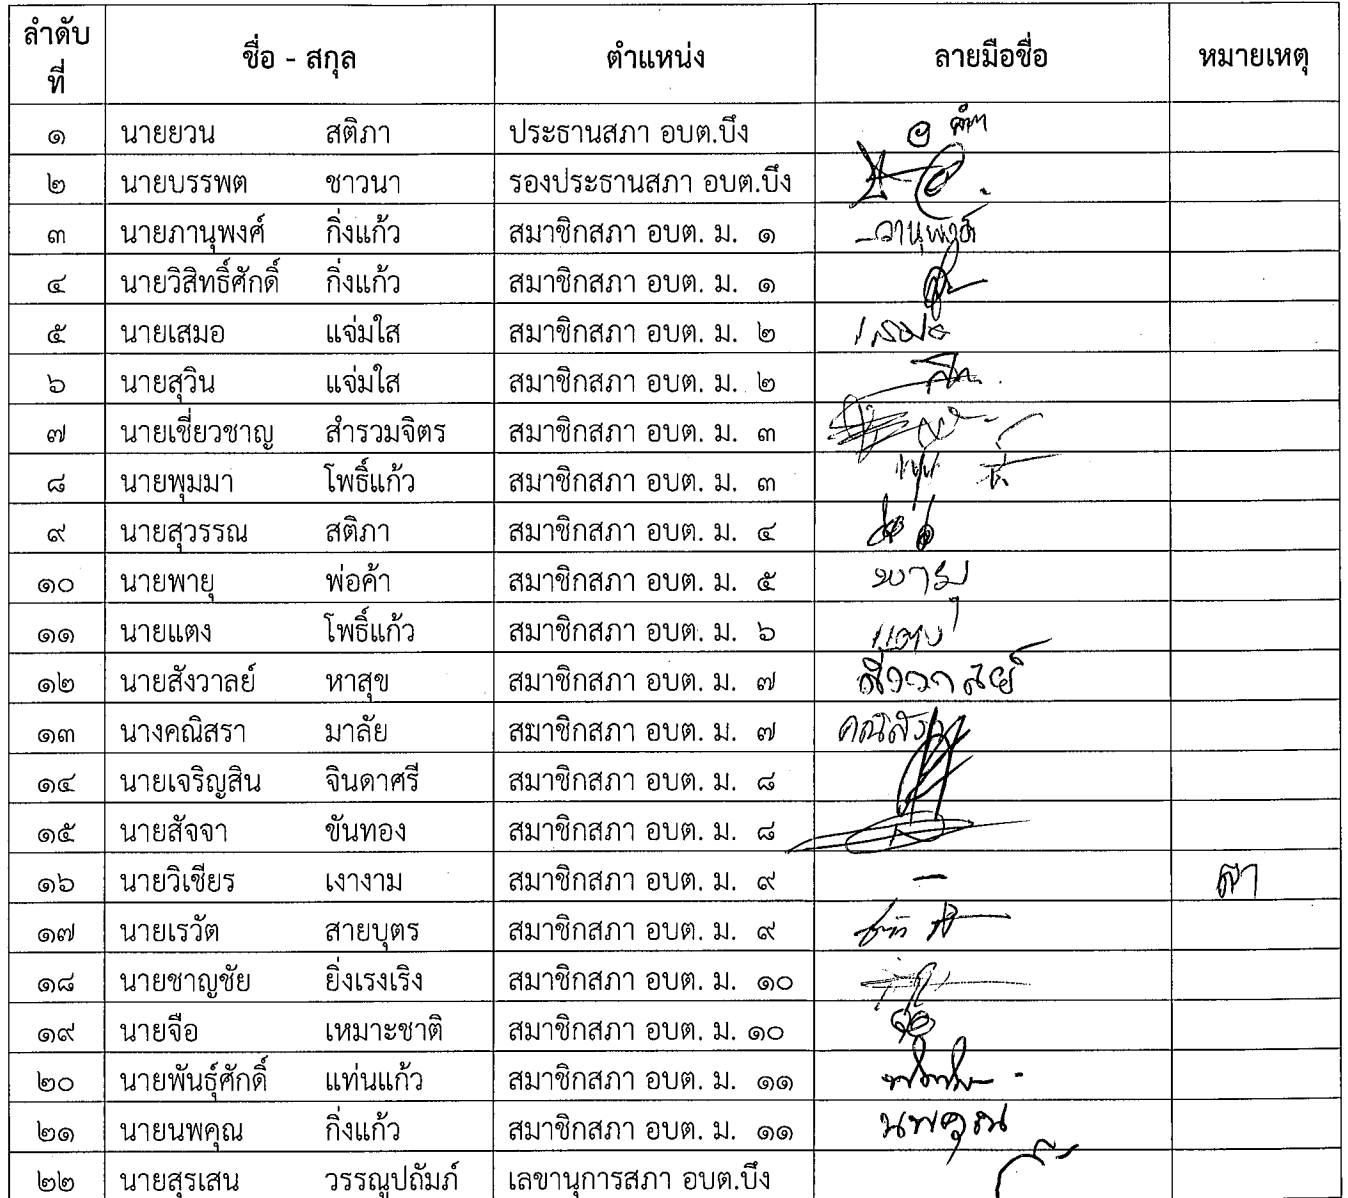 ลำดับ ชื่อ - สกุล ตำแหน่ง ลายมือชื่อ หมายเหตุ
ที่
๑ นายยวน สติภา ประธานสภา อบต.บึง
๒ นายบรรพต ชาวนา รองประธานสภา อบต.บึง
๓ นายภานุพงศ์ กิ่งแก้ว สมาชิกสภา อบต. ม. ๑
๔ นายวิสิทธิ์ศักดิ์ กิ่งแก้ว สมาชิกสภา อบต. ม. ๑
๕ นายเสมอ แจ่มใส สมาชิกสภา อบต. ม. ๒ เสมอ
๖ นายสุวิน แจ่มใส สมาชิกสภา อบต. ม. ๒
๗ นายเชี่ยวชาญ สำรวมจิตร สมาชิกสภา อบต. ม. ๓
๘ นายพุมมา โพธิ์แก้ว สมาชิกสภา อบต. ม. ๓
๙ นายสุวรรณ สติภา สมาชิกสภา อบต. ม. ๔
๑๐ นายพายุ พ่อค้า สมาชิกสภา อบต. ม. ๕
๑๑ นายแตง โพธิ์แก้ว สมาชิกสภา อบต. ม. ๖ แตง
๑๒ นายสังวาลย์ หาสุข สมาชิกสภา อบต. ม. ๗ สังวาลย์
๑๓ นางคณิสรา มาลัย สมาชิกสภา อบต. ม. ๗
๑๔ นายเจริญสิน จินดาศรี สมาชิกสภา อบต. ม. ๘
๑๕ นายสัจจา ขันทอง สมาชิกสภา อบต. ม. ๘
๑๖ นายวิเชียร เงางาม สมาชิกสภา อบต. ม. ๙ - ลา
๑๗ นายเรวัต สายบุตร สมาชิกสภา อบต. ม. ๙
๑๘ นายชาญชัย ยิ่งเรงเริง สมาชิกสภา อบต. ม. ๑๐
๑๙ นายจือ เหมาะชาติ สมาชิกสภา อบต. ม. ๑๐
๒๐ นายพันธุ์ศักดิ์ แท่นแก้ว สมาชิกสภา อบต. ม. ๑๑
๒๑ นายนพคุณ กิ่งแก้ว สมาชิกสภา อบต. ม. ๑๑ นพคุณ
๒๒ นายสุรเสน วรรณูปถัมภ์ เลขานุการสภา อบต.บึง